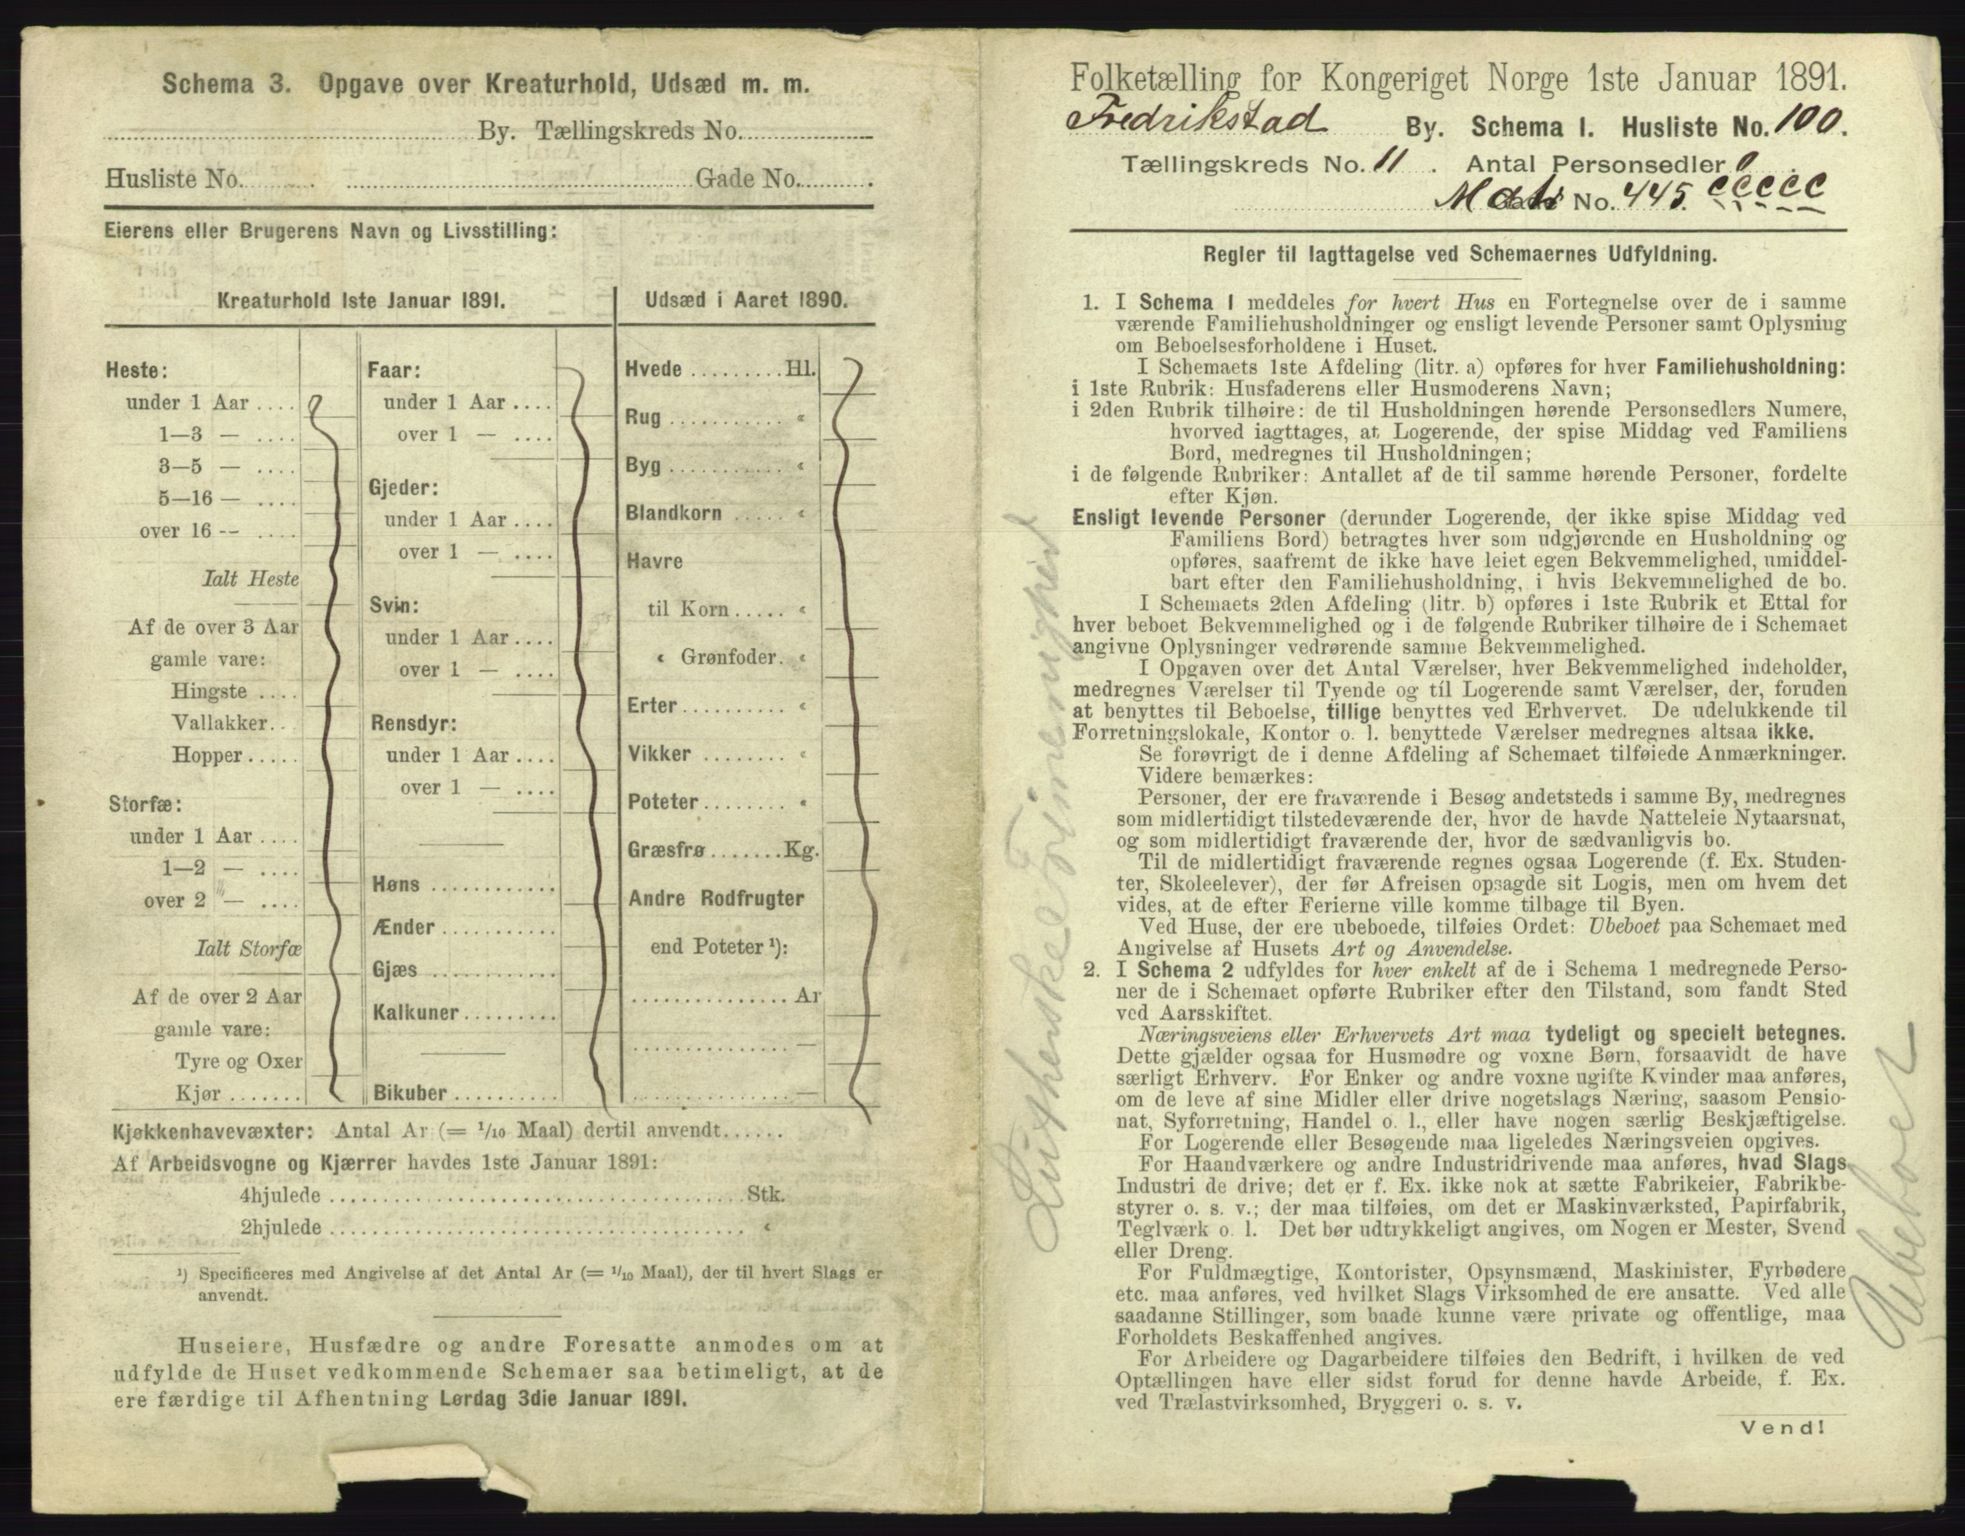 Schema 3. Opgave over Kreaturhold, Udsæd m. m.
By. Tællingskreds No.
Husliste No. Gade No.
Eierens eller Brugerens Navn og Livsstilling:
Kreaturhold 1ste Januar 1891.
Heste:
under 1 Aar ....
1—3 — ....
3—5 — ....
5—16 — ....
over 16 -- ....
Ialt Heste
Af de over 3 Aar
gamle vare:
Hingste ....
Vallakker..
Hopper.....
Storfæ:
under 1 Aar ....
1—2 — ....
over 2 — ....
Ialt Storfæ
Af de over 2 Aar
gamle vare:
Tyre og Oxer
Kjør .......
Faar:
under 1 Aar ....
over 1 — ....
Gjeder:
under 1 Aar ....
over 1 — ....
Svin:
under 1 Aar ....
over 1 — ....
Rensdyr:
under 1 Aar ....
over 1 — ....
Høns ............
Ænder ...........
Gjæs ............
Kalkuner.........
Bikuber ..........
Udsæd i Aaret 1890.
Hvede .........Hl.
Rug ........... «
Byg ........... «
Blandkorn ..... «
Havre
til Korn ..... «
« Grønfoder. «
Erter.......... «
Vikker ........ «
Poteter........ «
Græsfrø .......Kg.
Andre Rodfrugter
end Poteter ¹):
............... Ar
............... —
............... —
Kjøkkenhavevæxter: Antal Ar (= 1/10 Maal) dertil anvendt......
Af Arbeidsvogne og Kjærrer havdes 1ste Januar 1891:
4hjulede ........................................Stk.
2hjulede ........................................ «
¹) Specificeres med Angivelse af det Antal Ar (= 1/10 Maal), der til hvert Slags er
anvendt.
Huseiere, Husfædre og andre Foresatte anmodes om at
udfylde de Huset vedkommende Schemaer saa betimeligt, at de
ere færdige til Afhentning Lørdag 3die Januar 1891.
Folketælling for Kongeriget Norge 1ste Januar 1891.
Fredrikstad By. Schema I. Husliste No. 100.
Tællingskreds No. 11. Antal Personsedler 0.
No. 445. ccccc
Regler til Iagttagelse ved Schemaernes Udfyldning.
1. I Schema I meddeles for hvert Hus en Fortegnelse over de i samme
værende Familiehusholdninger og ensligt levende Personer samt Oplysning
om Beboelsesforholdene i Huset.
I Schemaets 1ste Afdeling (litr. a) opføres for hver Familiehusholdning:
i 1ste Rubrik: Husfaderens eller Husmoderens Navn;
i 2den Rubrik tilhøire: de til Husholdningen hørende Personsedlers Numere,
hvorved iagttages, at Logerende, der spise Middag ved Familiens
Bord, medregnes til Husholdningen;
i de følgende Rubriker: Antallet af de til samme hørende Personer, fordelte
efter Kjøn.
Ensligt levende Personer (derunder Logerende, der ikke spise Middag ved
Familiens Bord) betragtes hver som udgjørende en Husholdning og
opføres, saafremt de ikke have leiet egen Bekvemmelighed, umiddel-
bart efter den Familiehusholdning, i hvis Bekvemmelighed de bo.
I Schemaets 2den Afdeling (litr. b) opføres i 1ste Rubrik et Ettal for
hver beboet Bekvemmelighed og i de følgende Rubriker tilhøire de i Schemaet
angivne Oplysninger vedrørende samme Bekvemmelighed.
I Opgaven over det Antal Værelser, hver Bekvemmelighed indeholder,
medregnes Værelser til Tyende og til Logerende samt Værelser, der, foruden
at benyttes til Beboelse, tillige benyttes ved Erhvervet. De udelukkende til
Forretningslokale, Kontor o. l. benyttede Værelser medregnes altsaa ikke.
Se forøvrigt de i denne Afdeling af Schemaet tilføiede Anmærkninger.
Videre bemærkes:
Personer, der ere fraværende i Besøg andetsteds i samme By, medregnes
som midlertidigt tilstedeværende der, hvor de havde Natteleie Nytaarsnat,
og som midlertidigt fraværende der, hvor de sædvanligvis bo.
Til de midlertidigt fraværende regnes ogsaa Logerende (f. Ex. Studen-
ter, Skoleelever), der før Afreisen opsagde sit Logis, men om hvem det
vides, at de efter Ferierne ville komme tilbage til Byen.
Ved Huse, der ere ubeboede, tilføies Ordet: Ubeboet paa Schemaet med
Angivelse af Husets Art og Anvendelse.
2. I Schema 2 udfyldes for hver enkelt af de i Schema 1 medregnede Perso-
ner de i Schemaet opførte Rubriker efter den Tilstand, som fandt Sted
ved Aarsskiftet.
Næringsveiens eller Erhvervets Art maa tydeligt og specielt betegnes.
Dette gjælder ogsaa for Husmødre og voxne Børn, forsaavidt de have
særligt Erhverv. For Enker og andre voxne ugifte Kvinder maa anføres,
om de leve af sine Midler eller drive nogetslags Næring, saasom Pensio-
nat, Syforretning, Handel o. l., eller have nogen særlig Beskjæftigelse.
For Logerende eller Besøgende maa ligeledes Næringsveien opgives.
For Haandværkere og andre Industridrivende maa anføres, hvad Slags
Industri de drive; det er f. Ex. ikke nok at sætte Fabrikeier, Fabrikbe-
styrer o. s. v.; der maa tilføies, om det er Maskinværksted, Papirfabrik,
Teglværk o. l. Det bør udtrykkeligt angives, om Nogen er Mester, Svend
eller Dreng.
For Fuldmægtige, Kontorister, Opsynsmænd, Maskinister, Fyrbødere
etc. maa anføres, ved hvilket Slags Virksomhed de ere ansatte. Ved alle
saadanne Stillinger, som baade kunne være private og offentlige, maa
Forholdets Beskaffenhed angives.
For Arbeidere og Dagarbeidere tilføies den Bedrift, i hvilken de ved
Optællingen have eller sidst forud for denne havde Arbeide, f. Ex.
ved Trælastvirksomhed, Bryggeri o. s. v.
Vend!
Lutherske Frimenighed
Ubeboet